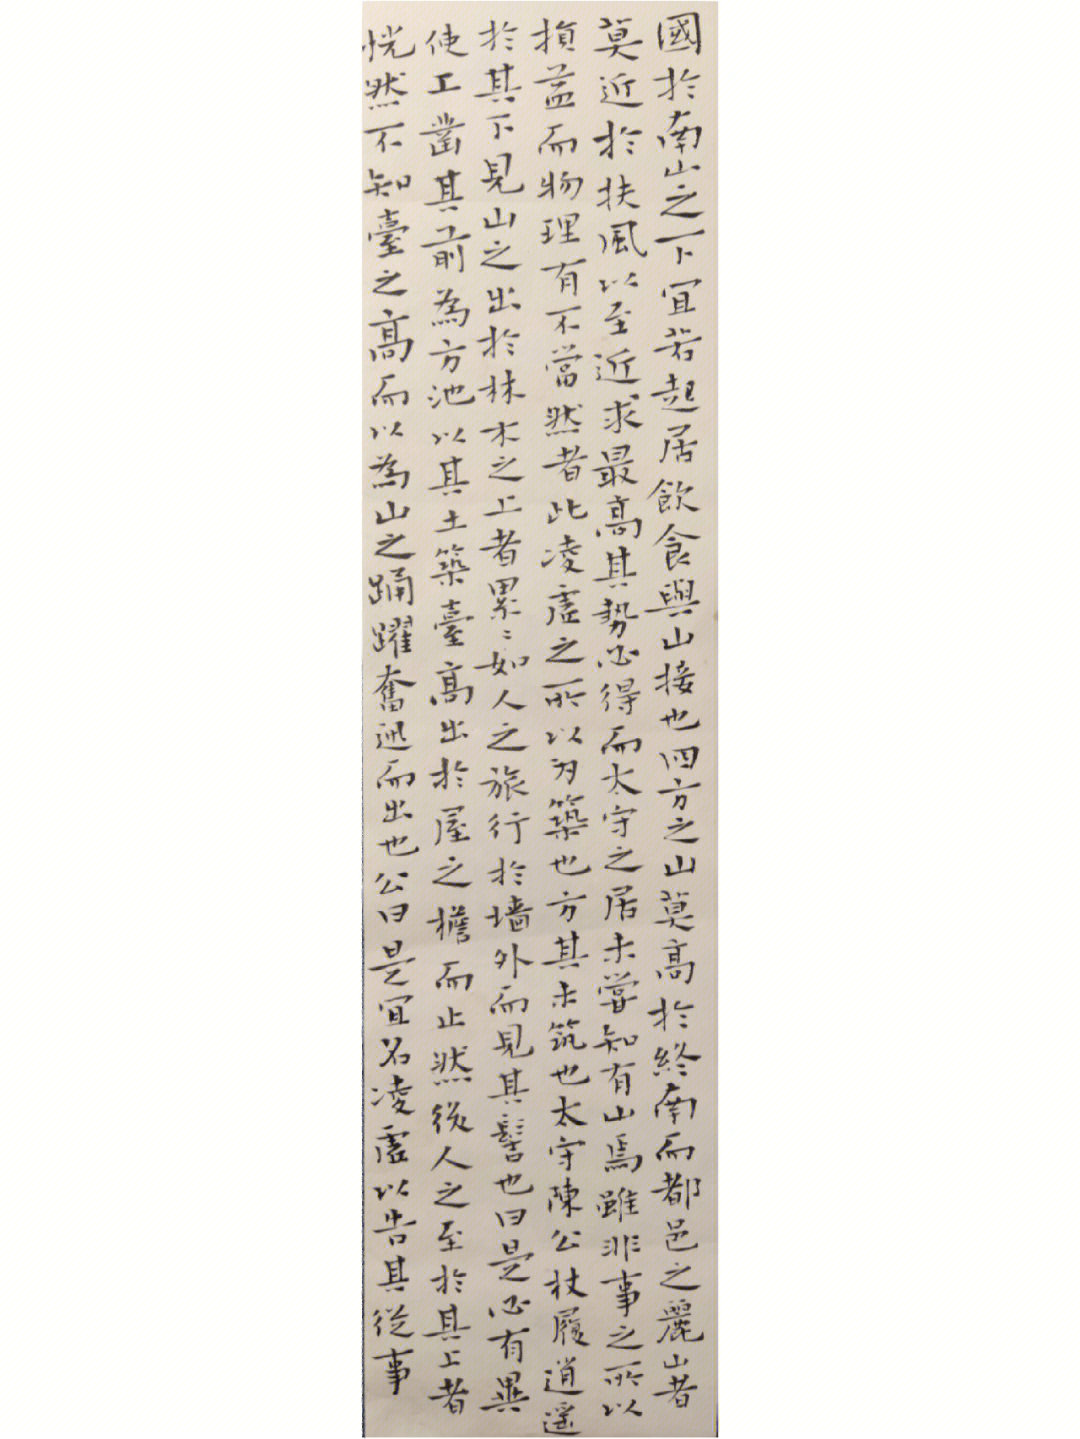 國於南山之下宜若起居飲食與山接也四方之山莫高於終南而都邑之麗山者
莫近於扶風以至近求最高其勢必得而太守之居未嘗知有山焉雖非事之所以
損益而物理有不當然者此凌虛之所以为築也方其未筑也太守陳公杖履逍遥
於其下見山之出於林木之上者累〻如人之旅行於墻外而見其髻也曰是必有異
使工凿其前為方池以其土築臺高出於屋之檐而止然後人之至於其上者
恍然不知臺之高而以為山之踊躍奮迅而出也公曰是宜名凌虛以告其從事